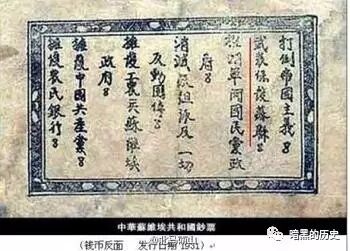 打倒帝國主義
武裝保護蘇聯
推翻軍閥國民黨政
府
消滅派組派及一切
反動團体
擁護工農兵蘇維埃
政府
擁護中國共產黨
擁護農民銀行
中華蘇維埃共和國鈔票
(钱币反面 发行日期1931)
暗黑的历史